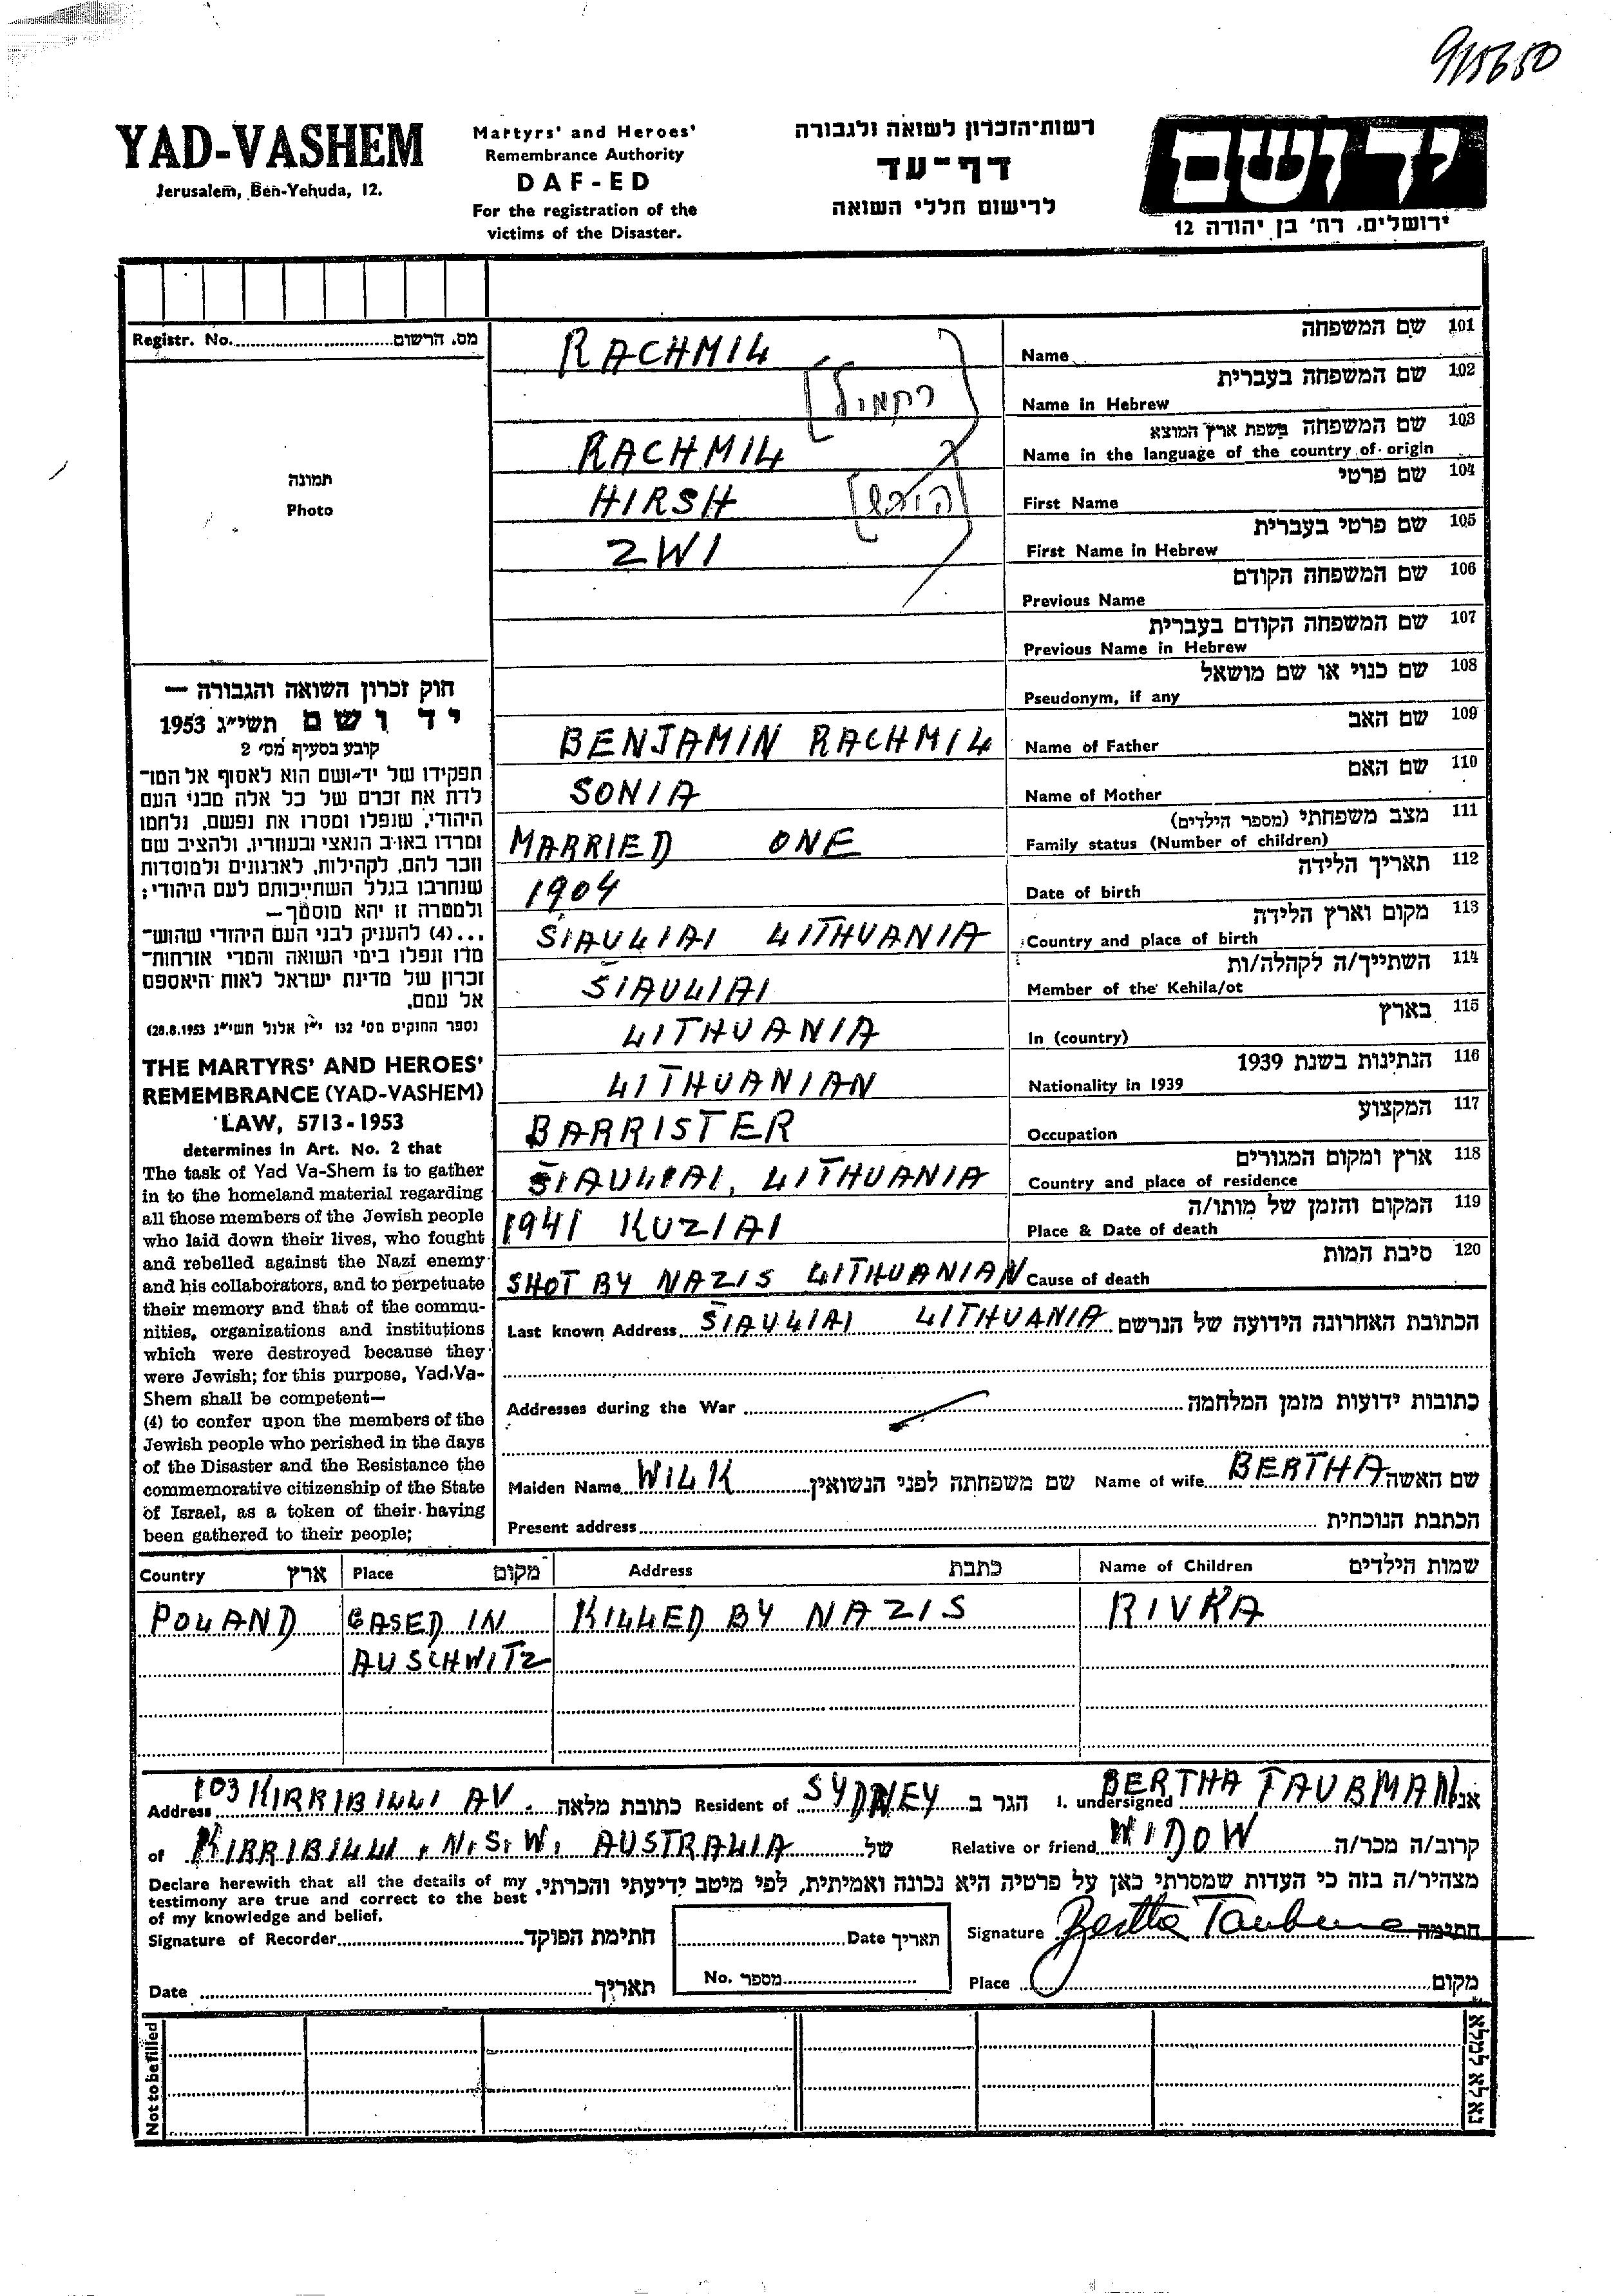 9/15650
YAD-VASHEM
Jerusalem, Ben-Yehuda, 12.
Martyrs' and Heroes'
Remembrance Authority
DAF-ED
For the registration of the
victims of the Disaster.
רשות-הזכרון לשואה ולגבורה
דף-עד
לרישום חללי השואה
יד ושם
ירושלים, רח' בן יהודה 12
Registr. No. מס. הרשום
תמונה
Photo
חוק זכרון השואה והגבורה —
יד ושם תשי"ג 1953
קובע בסעיף מס' 2
תפקידו של יד-ושם הוא לאסוף אל המו-
לדת את זכרם של כל אלה מבני העם
היהודי, שנפלו ומסרו את נפשם, נלחמו
ומרדו באויב הנאצי ובעוזריו, ולהציב שם
וזכר להם, לקהילות, לארגונים ולמוסדות
שנחרבו בגלל השתייכותם לעם היהודי;
ולמטרה זו יהא מוסמך—
...(4) להעניק לבני העם היהודי שהוש-
מדו ונפלו בימי השואה והמרי אזרחות-
זכרון של מדינת ישראל לאות היאספם
אל עמם.
(ספר החוקים מס' 132 י"ז אלול תשי"ג 28.8.1953)
THE MARTYRS' AND HEROES'
REMEMBRANCE (YAD-VASHEM)
LAW, 5713-1953
determines in Art. No. 2 that
The task of Yad Va-Shem is to gather
in to the homeland material regarding
all those members of the Jewish people
who laid down their lives, who fought
and rebelled against the Nazi enemy
and his collaborators, and to perpetuate
their memory and that of the commu-
nities, organizations and institutions
which were destroyed because they
were Jewish; for this purpose, Yad-Va-
Shem shall be competent—
(4) to confer upon the members of the
Jewish people who perished in the days
of the Disaster and the Resistance the
commemorative citizenship of the State
of Israel, as a token of their having
been gathered to their people;
101 שם המשפחה
Name RACHMIL
102 שם המשפחה בעברית
Name in Hebrew [רחמיל]
103 שם המשפחה בשפת ארץ המוצא
Name in the language of the country of origin RACHMIL
104 שם פרטי
First Name HIRSH [הירש]
105 שם פרטי בעברית
First Name in Hebrew ZWI
106 שם המשפחה הקודם
Previous Name
107 שם המשפחה הקודם בעברית
Previous Name in Hebrew
108 שם כנוי או שם מושאל
Pseudonym, if any
109 שם האב
Name of Father BENJAMIN RACHMIL
110 שם האם
Name of Mother SONIA
111 מצב משפחתי (מספר הילדים)
Family status (Number of children) MARRIED ONE
112 תאריך הלידה
Date of birth 1904
113 מקום וארץ הלידה
Country and place of birth SIAULIAI LITHUANIA
114 השתייך/ה לקהלה/ות
Member of the Kehila/ot SIAULIAI
115 בארץ
In (country) LITHUANIA
116 הנתינות בשנת 1939
Nationality in 1939 LITHUANIAN
117 המקצוע
Occupation BARRISTER
118 ארץ ומקום המגורים
Country and place of residence SIAULIAI, LITHUANIA
119 המקום והזמן של מותו/ה
Place & Date of death 1941 KUZIAI
120 סיבת המות
Cause of death SHOT BY NAZIS LITHUANIAN
Last known Address SIAULIAI LITHUANIA הכתובת האחרונה הידועה של הנרשם
Addresses during the War כתובות ידועות מזמן המלחמה
Maiden Name WILK שם משפחתה לפני הנשואין Name of wife BERTHA שם האשה
Present address הכתבת הנוכחית
Country ארץ Place מקום Address כתבת Name of Children שמות הילדים
POLAND GASED IN KILLED BY NAZIS RIVKA
AUSCHWITZ
Address 103 KIRRIBILLI AV. כתובת מלאה Resident of SYDNEY הגר ב I. undersigned BERTHA TAUBMAN אני
of KIRRIBILLI, N.S.W. AUSTRALIA של Relative or friend WIDOW קרוב/ה מכר/ה
Declare herewith that all the details of my
testimony are true and correct to the best
of my knowledge and belief.
מצהיר/ה בזה כי העדות שמסרתי כאן על פרטיה היא נכונה ואמיתית, לפי מיטב ידיעתי והכרתי.
Signature of Recorder חתימת הפוקד Date תאריך Signature Bertha Taubman חתימה
Date תאריך No. מספר Place מקום
Not to be filled נא לא למלא